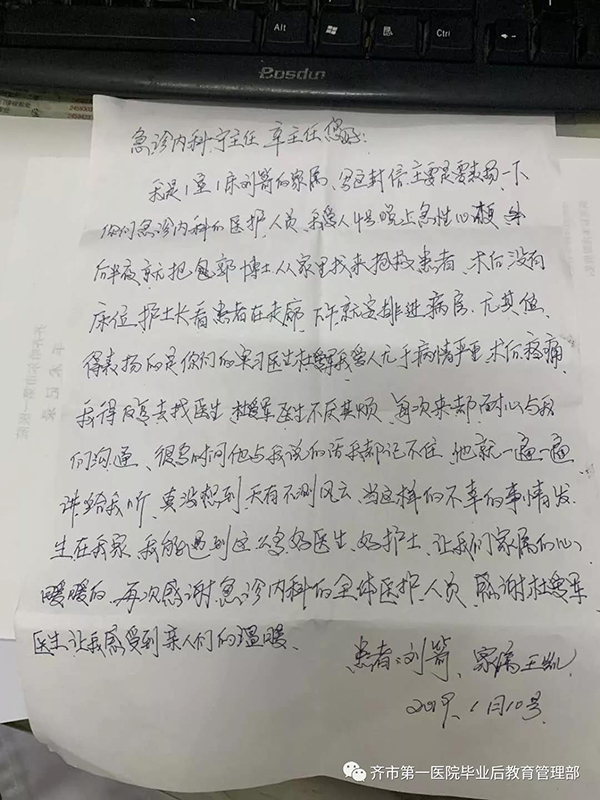 Alt
Ctrl
急诊内科宁主任 车主任您好:
我是1室1床刘箭的家属、写这封信主要是要表扬一下
你们急诊内科的医护人员、我爱人4号晚上急性心梗
后半夜就把包郭博士从家里找来抢救患者、术后没有
床位、护士长看患者在走廊、下午就安排进病房、尤其值
得表扬的是你们的实习医生杜 军我爱人尤于病情严重、术后疼痛
我得反复去找医生、杜 军医生不厌其烦、每次来都耐心与我
们沟通、很多时间他与我说的话我都记不住、他就一遍一遍
讲给我听、真没想到、天有不测风云、当这样的不幸的事情发
生在我家、我能遇到这么多好医生、好护士、让我们家属的心
暖暖的、再次感谢急诊内科的全体医护人员、感谢杜 军
医生让我感受到亲人们的温暖、
患者:刘箭、家属王凯
2019、1月10号
齐市第一医院毕业后教育管理部